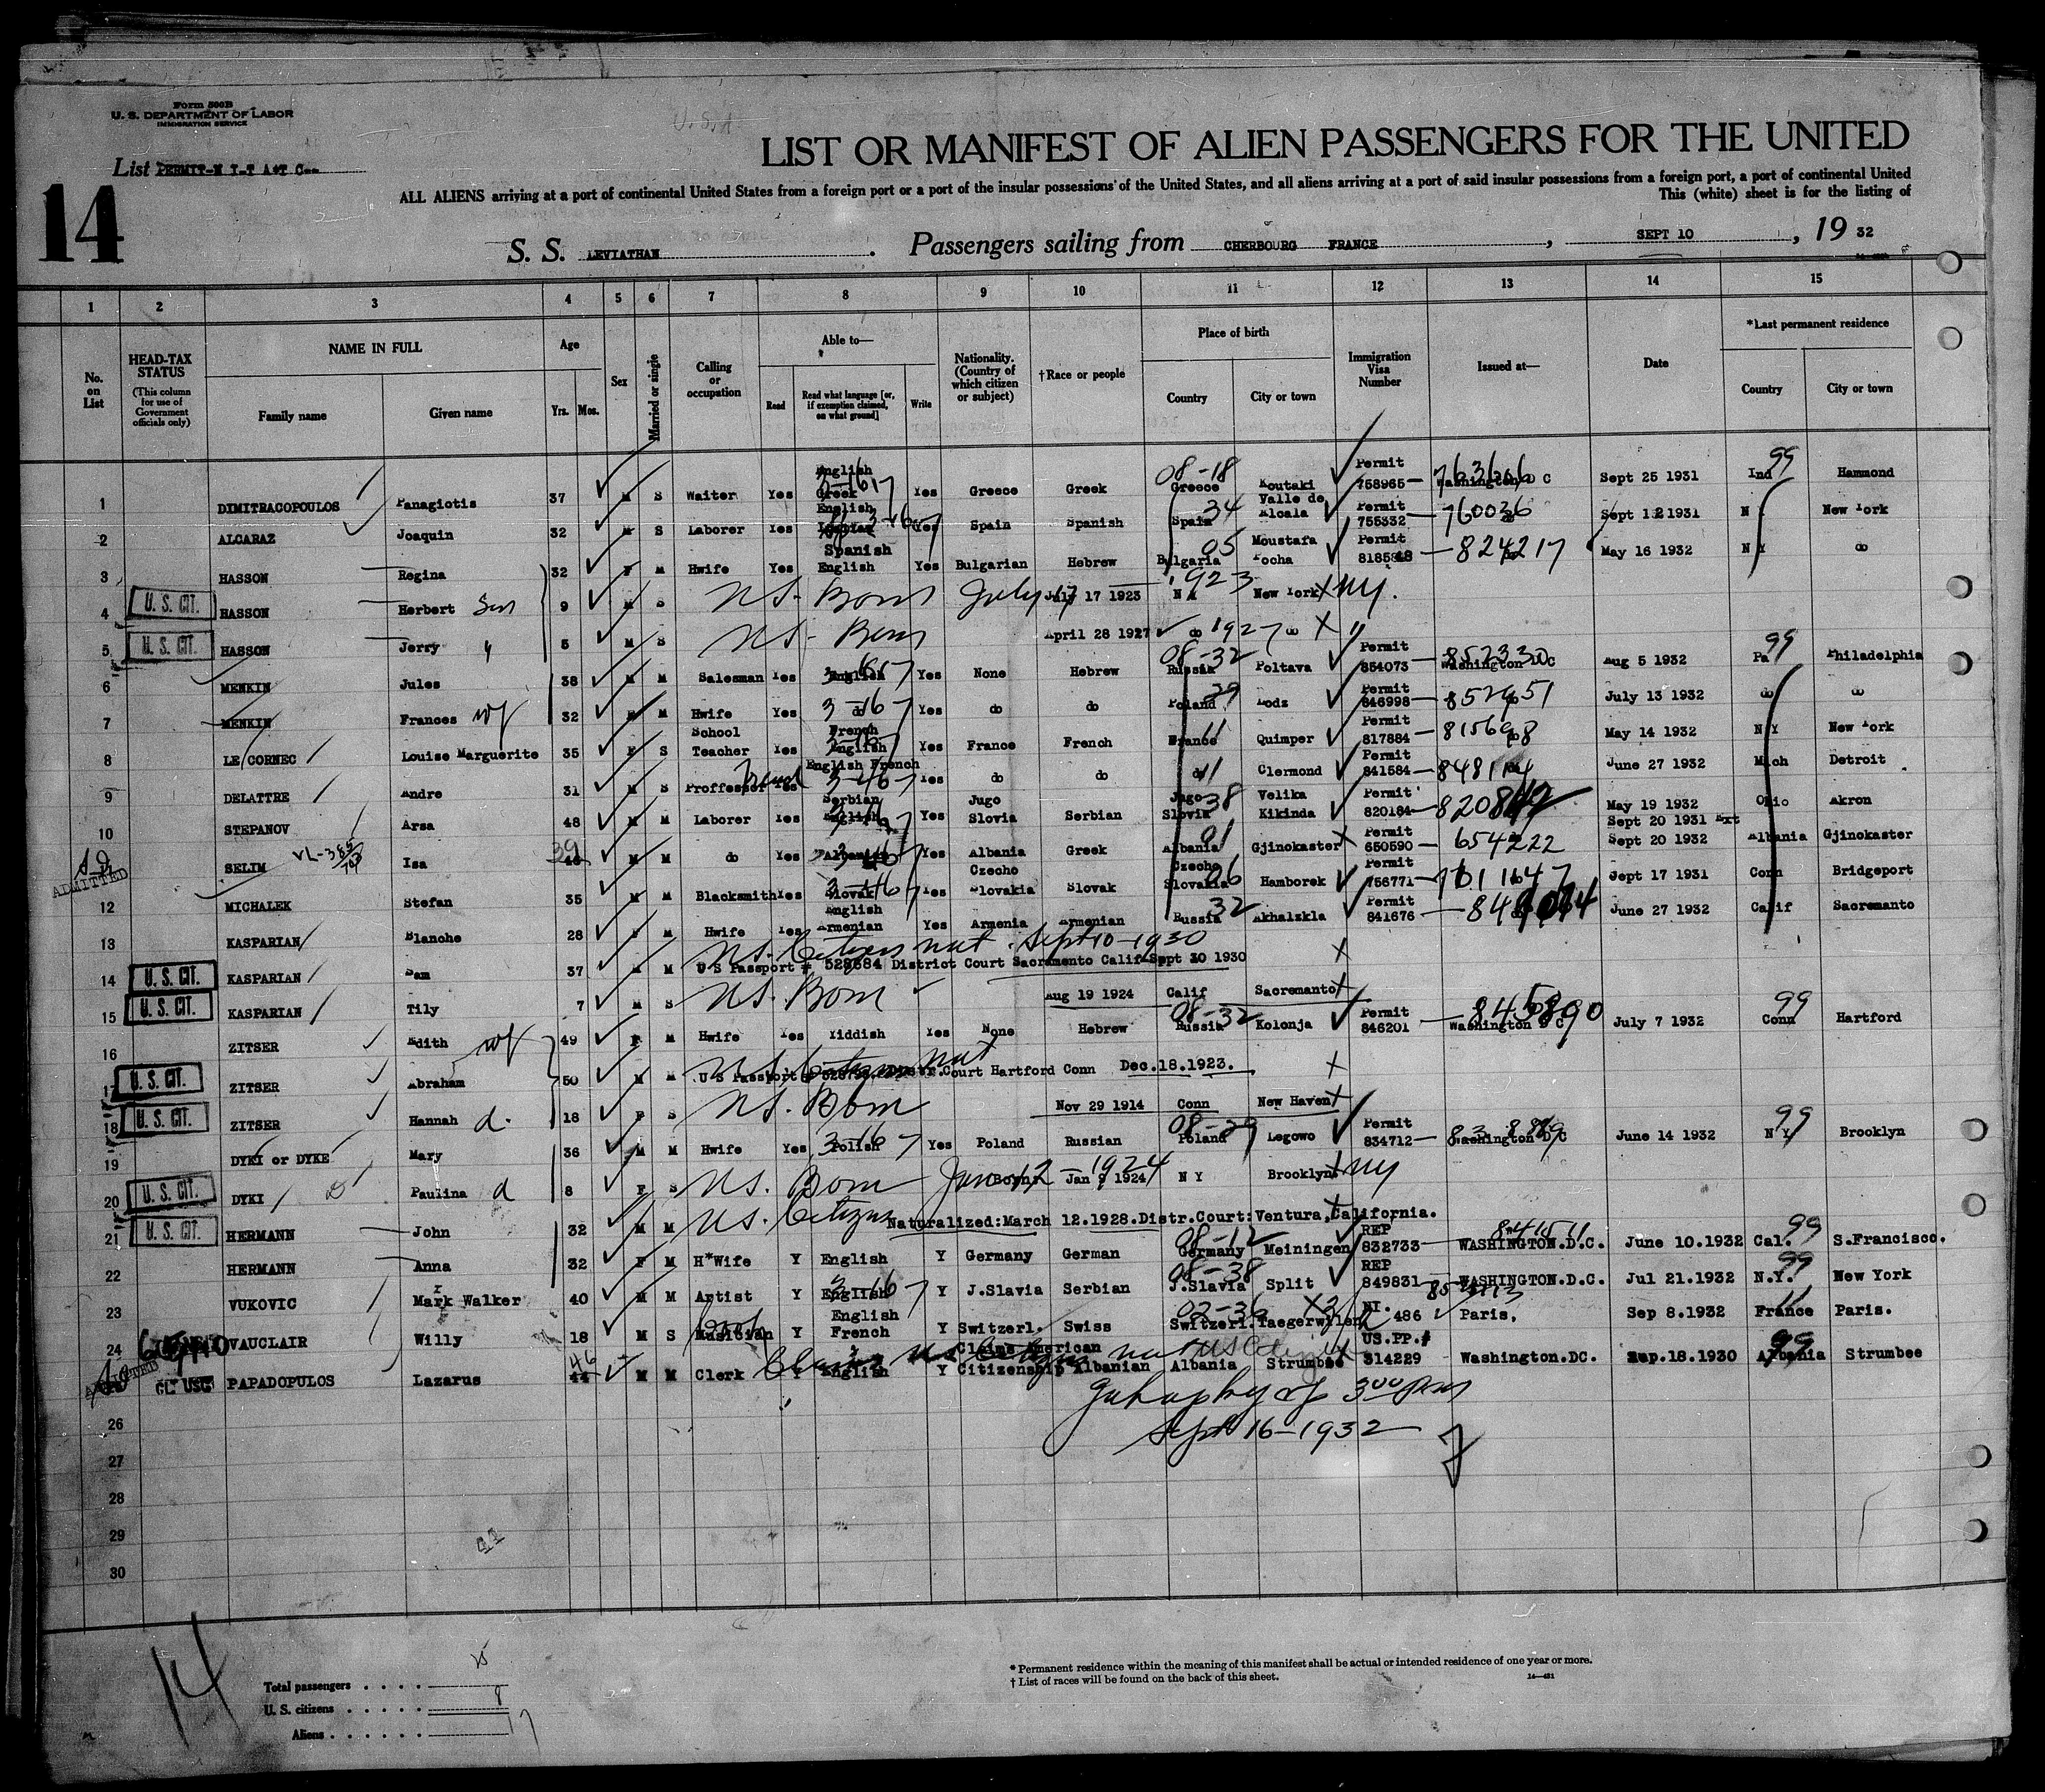 Form 500B
U. S. DEPARTMENT OF LABOR
IMMIGRATION SERVICE
List PERMIT-N I-T A&T C--
14
LIST OR MANIFEST OF ALIEN PASSENGERS FOR THE UNITED
ALL ALIENS arriving at a port of continental United States from a foreign port or a port of the insular possessions of the United States, and all aliens arriving at a port of said insular possessions from a foreign port, a port of continental United
This (white) sheet is for the listing of
S. S. LEVIATHAN. Passengers sailing from CHERBOURG FRANCE, SEPT 10, 19 32
1 2 3 4 5 6 7 8 9 10 11 12 13 14 15
No. on List
HEAD-TAX STATUS (This column for use of Government officials only)
NAME IN FULL
Family name Given name
Age Yrs. Mos.
Sex
Married or single
Calling or occupation
Able to—
Read Read what language [or, if exemption claimed, on what ground] Write
Nationality. (Country of which citizen or subject)
†Race or people
Place of birth
Country City or town
Immigration Visa Number
Issued at—
Date
*Last permanent residence
Country City or town
1 DIMITRACOPOULOS Panagiotis 37 M S Waiter Yes English Greek Yes Greece Greek 08-18 Greece Koutaki Permit 758965 Washington D C Sept 25 1931 Ind 99 Hammond
2 ALCARAZ Joaquin 32 M S Laborer Yes English Yes Spain Spanish Spain 34 Valle de Alcala Permit 755332 760036 Sept 12 1931 N Y New York
3 HASSON Regina 32 F M Hwife Yes Spanish English Yes Bulgarian Hebrew Bulgaria 05 Moustafa Pocha Permit 818548 824217 May 16 1932 N Y do
4 U. S. CIT. HASSON Herbert Son 9 M S US. Born July 17 1923 July 17 1923 N Y New York X NY.
5 U. S. CIT. HASSON Jerry 5 M S US- Born April 28 1927 do 1927 do X
6 MENKIN Jules 38 M M Salesman Yes English Yes None Hebrew 08-32 Russia Poltava Permit 854073 Washington D C Aug 5 1932 Pa 99 Philadelphia
7 MENKIN Frances wf 32 M Hwife Yes do Yes do do Poland 29 Lodz Permit 846998 852951 July 13 1932 do do
8 LE CORNEC Louise Marguerite 35 F S School Teacher Yes French English Yes France French France 11 Quimper Permit 817884 815698 May 14 1932 N Y New York
9 DELATTRE Andre 31 M S Proffessor Yes English French Yes do do do 11 Clermond Permit 841584 June 27 1932 Mich Detroit
10 STEPANOV Arsa 48 M M Laborer Yes Serbian English Yes Jugo Slovia Serbian Jugo Slovik 38 Velika Kikinda Permit 820184 May 19 1932 Ohio Akron
SELIM Isa 39 M M do Yes Albanian Yes Albania Greek Albania 01 Gjinokaster X Permit 650590 654222 Sept 20 1931 Ext Sept 20 1932 Albania Gjinokaster
ADMITTED
12 MICHALEK Stefan 35 M M Blacksmith Yes Slovak Yes Czecho Slovakia Slovak Czecho Slovakia 26 Hamborek Permit 756771 Sept 17 1931 Conn Bridgeport
13 KASPARIAN Blanche 28 F M Hwife Yes English Armenian Yes Armenia Armenian Russia 32 Akhalzkla Permit 841676 June 27 1932 Calif Sacramento
14 U. S. CIT. KASPARIAN Sam 37 M M US. Citizen nat. Sept 10-1930 U S Passport # 529584 District Court Sacramento Calif Sept 30 1930 X
15 U. S. CIT. KASPARIAN Tily 7 M S US. Born Aug 19 1924 Calif Sacremanto X
16 ZITSER Edith wf 49 F M Hwife Yes Yiddish Yes None Hebrew 08-32 Russia Kolonja Permit 846201 845890 Washington D C July 7 1932 99 Conn Hartford
17 U. S. CIT. ZITSER Abraham 50 M M US Citizen nat U S Passport Distr. Court Hartford Conn Dec.18.1923. X
18 U. S. CIT. ZITSER Hannah d. 18 F S US. Born Nov 29 1914 Conn New Haven X
19 DYKI or DYKE Mary 36 M M Hwife Yes Polish Yes Poland Russian 08-29 Poland Legowo Permit 834712 Washington D C June 14 1932 N Y 99 Brooklyn
20 U. S. CIT. DYKI Paulina d 8 F S US. Born Jan 12-1924 Born: Jan 9 1924 N Y Brooklyn X NY
21 U. S. CIT. HERMANN John 32 M M US. Citizen Naturalized:March 12.1928.Distr.Court:Ventura,California.
22 HERMANN Anna 32 F M H*Wife Y English Y Germany German 08-12 Germany Meiningen REP 832733 841511 WASHINGTON.D.C. June 10.1932 Cal. 99 S.Francisco.
23 VUKOVIC Mark Walker 40 M M Artist Y English Y J.Slavia Serbian 08-38 J.Slavia Split REP 849831 WASHINGTON.D.C. Jul 21.1932 N.Y. 99 New York
24 VAUCLAIR Willy 18 M S Musician Y English French Y Switzerl. Swiss 02-36 Switzerl. Taegerwilen NI. 486 Paris, Sep 8.1932 France 11 Paris.
ADMITTED CL* USC PAPADOPULOS Lazarus 46 44 M M Clerk Y English Y Claims American Citizenship Albanian Albania Strumbee US.PP.# 314229 Washington.DC. Sep.18.1930 Albania 99 Strumbee
26
Sept 16-1932
27
28
29
30
14
Total passengers . . . . 25
U. S. citizens . . . . . 8
Aliens . . . . . . 17
* Permanent residence within the meaning of this manifest shall be actual or intended residence of one year or more.
† List of races will be found on the back of this sheet.
14—431